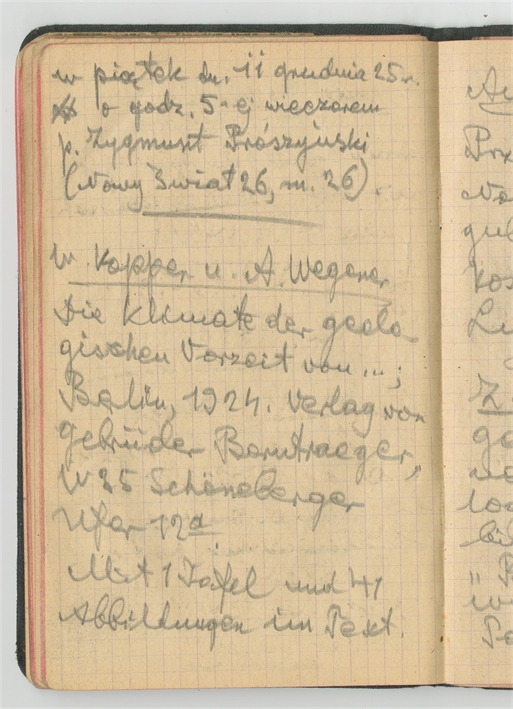 w piątek dn. 11 grudnia 25 r.
o godz. 5-ej wieczorem
p. Zygmunt Prószyński
(Nowy Świat 26, m. 26).
W. Köppen u. A. Wegener
Die Klimate der geolo
gischen Vorzeit von ... ;
Berlin, 1924. Verlag von
Gebrüder Borntraeger,
W 35 Schöneberger
Ufer 12a
Mit 1 Tafel und 41
Abbildungen im Text.